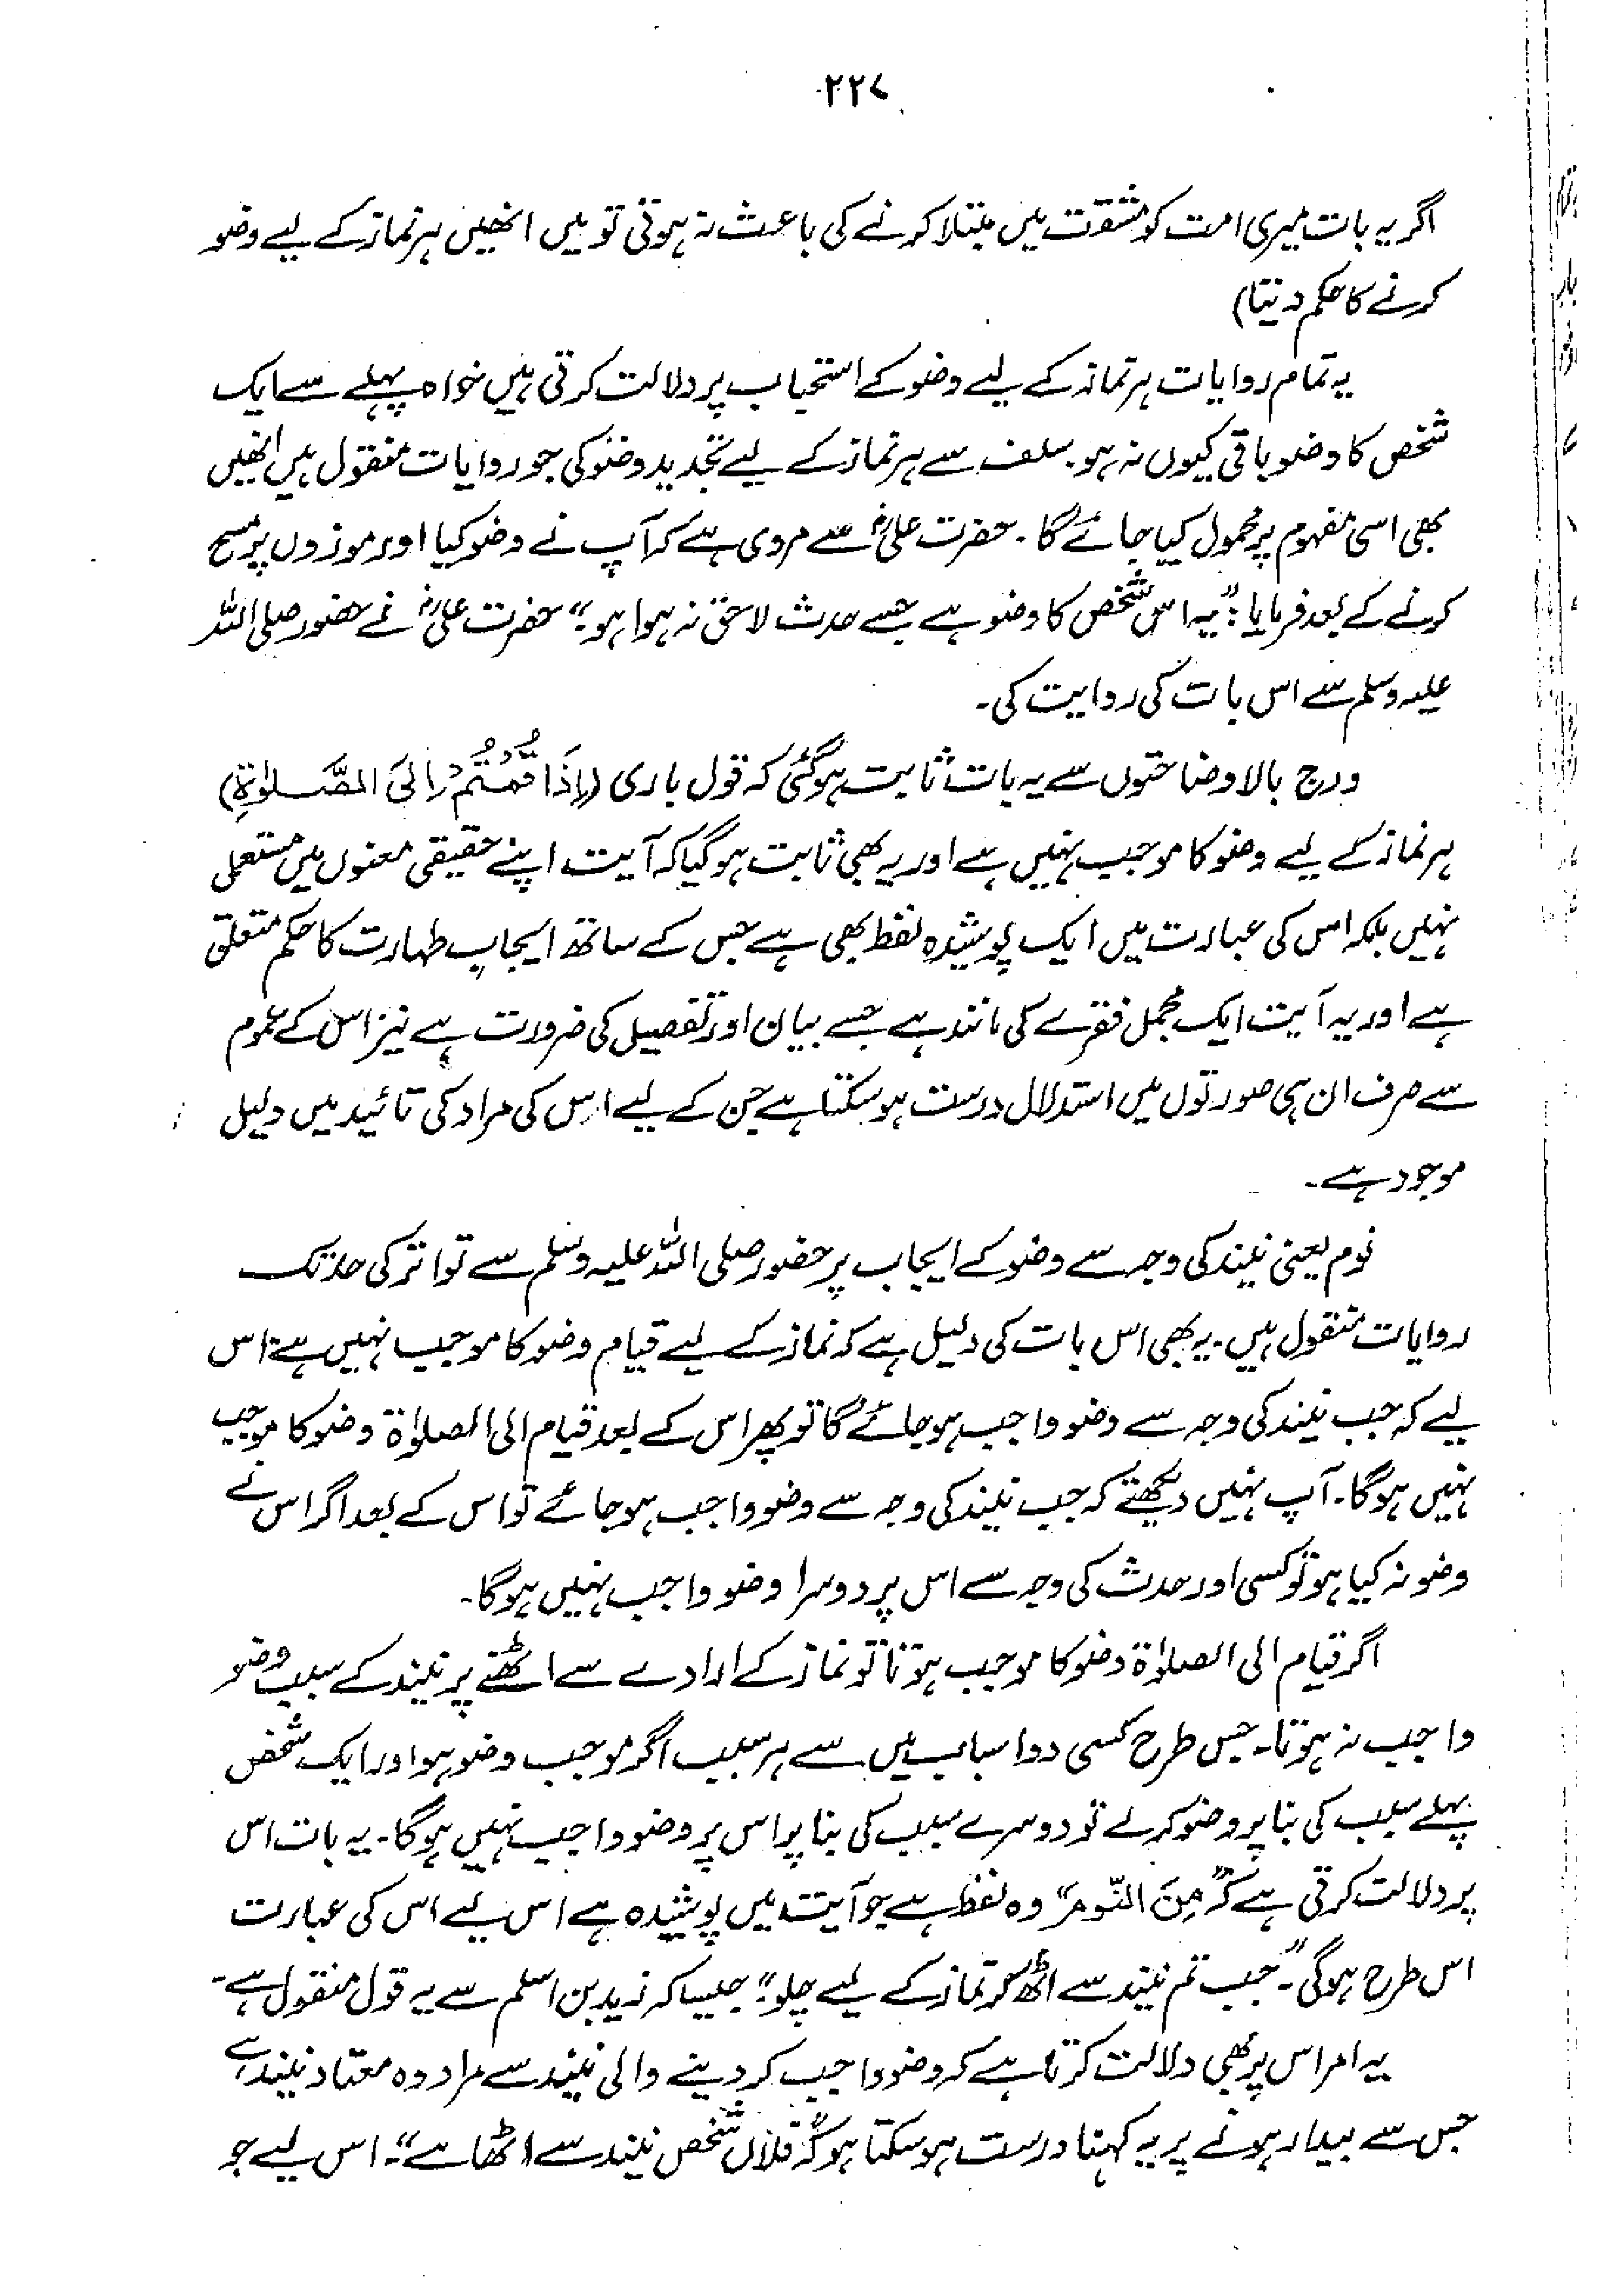 ۲۲۷
اگر یہ بات میری امت کو مشقت میں مبتلا کرنے کی باعث نہ ہوتی تو میں انھیں ہر نماز کے لیے وضو
کرنے کا حکم دیتا)
یہ تمام روایات ہر نماز کے لیے وضو کے استحباب پر دلالت کرتی ہیں خواہ پہلے سے ایک
شخص کا وضو باقی کیوں نہ ہو۔ سلف سے ہر نماز کے لیے تجدید وضو کی جو روایات منقول ہیں انھیں
بھی اسی مفہوم پر محمول کیا جائے گا۔ حضرت علیؓ سے مروی ہے کہ آپ نے وضو کیا اور موزوں پر مسح
کرنے کے بعد فرمایا: "یہ اس شخص کا وضو ہے جسے حدث لاحق نہ ہوا ہو" حضرت علیؓ نے حضور صلی اللہ
علیہ وسلم سے اس بات کی روایت کی۔
درج بالا وضاحتوں سے یہ بات ثابت ہو گئی کہ قول باری (اِذَا قُمْتُمْ اِلَی الصَّلٰوۃِ)
ہر نماز کے لیے وضو کا موجب نہیں ہے اور یہ بھی ثابت ہو گیا کہ آیت اپنے حقیقی معنوں میں مستعمل
نہیں بلکہ اس کی عبارت میں ایک پوشیدہ لفظ بھی ہے جس کے ساتھ ایجاب طہارت کا حکم متعلق
ہے اور یہ آیت ایک مجمل فقرے کی مانند ہے جسے بیان اور تفصیل کی ضرورت ہے نیز اس کے عموم
سے صرف ان ہی صورتوں میں استدلال درست ہو سکتا ہے جن کے لیے اس کی مراد کی تائید میں دلیل
موجود ہے۔
نوم یعنی نیند کی وجہ سے وضو کے ایجاب پر حضور صلی اللہ علیہ وسلم سے تواتر کی حد تک
روایات منقول ہیں۔ یہ بھی اس بات کی دلیل ہے کہ نماز کے لیے قیام وضو کا موجب نہیں ہے اس
لیے کہ جب نیند کی وجہ سے وضو واجب ہو جائے گا تو پھر اس کے بعد قیام الی الصلوٰۃ وضو کا موجب
نہیں ہوگا۔ آپ نہیں دیکھتے کہ جب نیند کی وجہ سے وضو واجب ہو جائے تو اس کے بعد اگر اس نے
وضو نہ کیا ہو تو کسی اور حدث کی وجہ سے اس پر دوسرا وضو واجب نہیں ہوگا۔
اگر قیام الی الصلوٰۃ وضو کا موجب ہوتا تو نماز کے ارادے سے اٹھنے پر نیند کے سبب وضو
واجب نہ ہوتا۔ جس طرح کسی دو اسباب میں سے ہر سبب اگر موجب وضو ہو اور ایک شخص
پہلے سبب کی بنا پر وضو کرلے تو دوسرے سبب کی بنا پر اس پر وضو واجب نہیں ہوگا۔ یہ بات اس
پر دلالت کرتی ہے کہ "مِنَ النَّوم" وہ لفظ ہے جو آیت میں پوشیدہ ہے اس لیے اس کی عبارت
اس طرح ہوگی۔ "جب تم نیند سے اٹھ کر نماز کے لیے چلو" جیسا کہ زید بن اسلم سے یہ قول منقول ہے۔
یہ امر اس پر بھی دلالت کرتا ہے کہ وضو واجب کر دینے والی نیند سے مراد وہ معتاد نیند ہے
جس سے بیدار ہونے پر یہ کہنا درست ہو سکتا ہو کہ "فلاں شخص نیند سے اٹھا ہے"۔ اس لیے جو